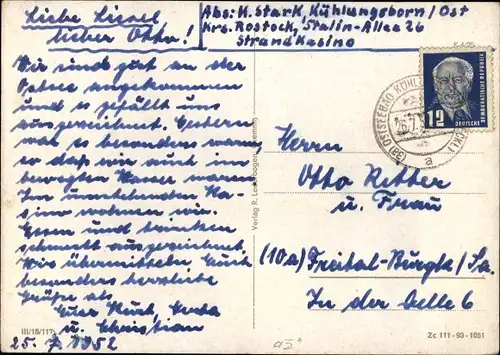 Liebe Liesel,
lieber Otto!
Wir sind gut an der
Ostsee angekommen
und es gefällt uns
ausgezeichnet. Gestern
war es besonders warm,
so daß wir auch im
bewegten Wasser waren.
Im umstehenden Ka-
sino wohnen wir.
Essen und trinken
schmeckt ausgezeichnet.
Wir übermitteln Euch
besonders herzliche
Grüße als
Euer Kurt, Herta
u. Christian
25. 7. 1952
III/18/117
Abs: K. Stark, Kühlungsborn/Ost
Krs. Rostock, Stalin-Allee 26
Strand Kasino
12
DEUTSCHE
DEMOKRATISCHE REPUBLIK
(OSTSEEBAD) KÜHLUNGSBORN
a
Herrn
Otto Ritter
u. Frau
(10a) Freital-Burgk/Sa.
In der Aelle 6
Zc 111-93-1051